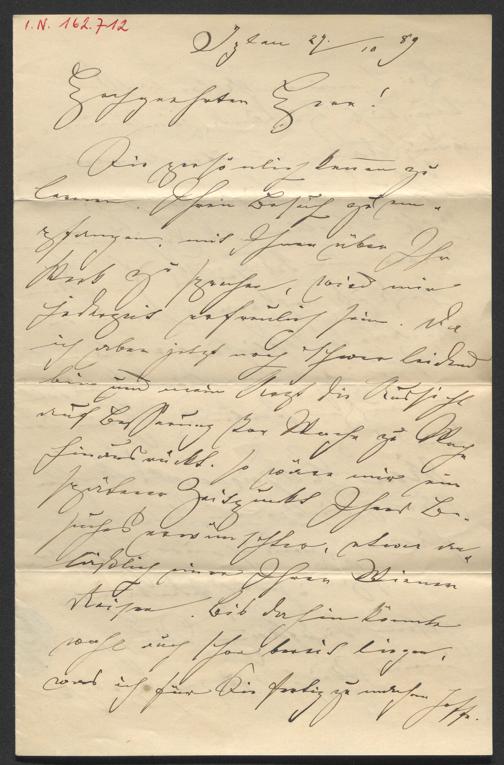 I.N. 162.712
Iglau 29/10 89
Hochgeehrter Herr!
Sie persönlich kennen zu
lernen, Ihren Besuch zu em-
pfangen, mit Ihnen über Ihr
Werk zu sprechen, wird mir
jederzeit erfreulich sein. Da
ich aber jetzt noch schwer leidend
bin und mein Arzt die Aussicht
auf Besserung von Woche zu Woche
hinausrückt, so wäre mir ein
späterer Zeitpunkt Ihres Be-
suches erwünschter, etwa an-
läßlich einer Ihrer Wiener
Reisen. Bis dahin könnte
wohl auch schon bereit liegen,
was ich für Sie fertig zu machen hoffe.